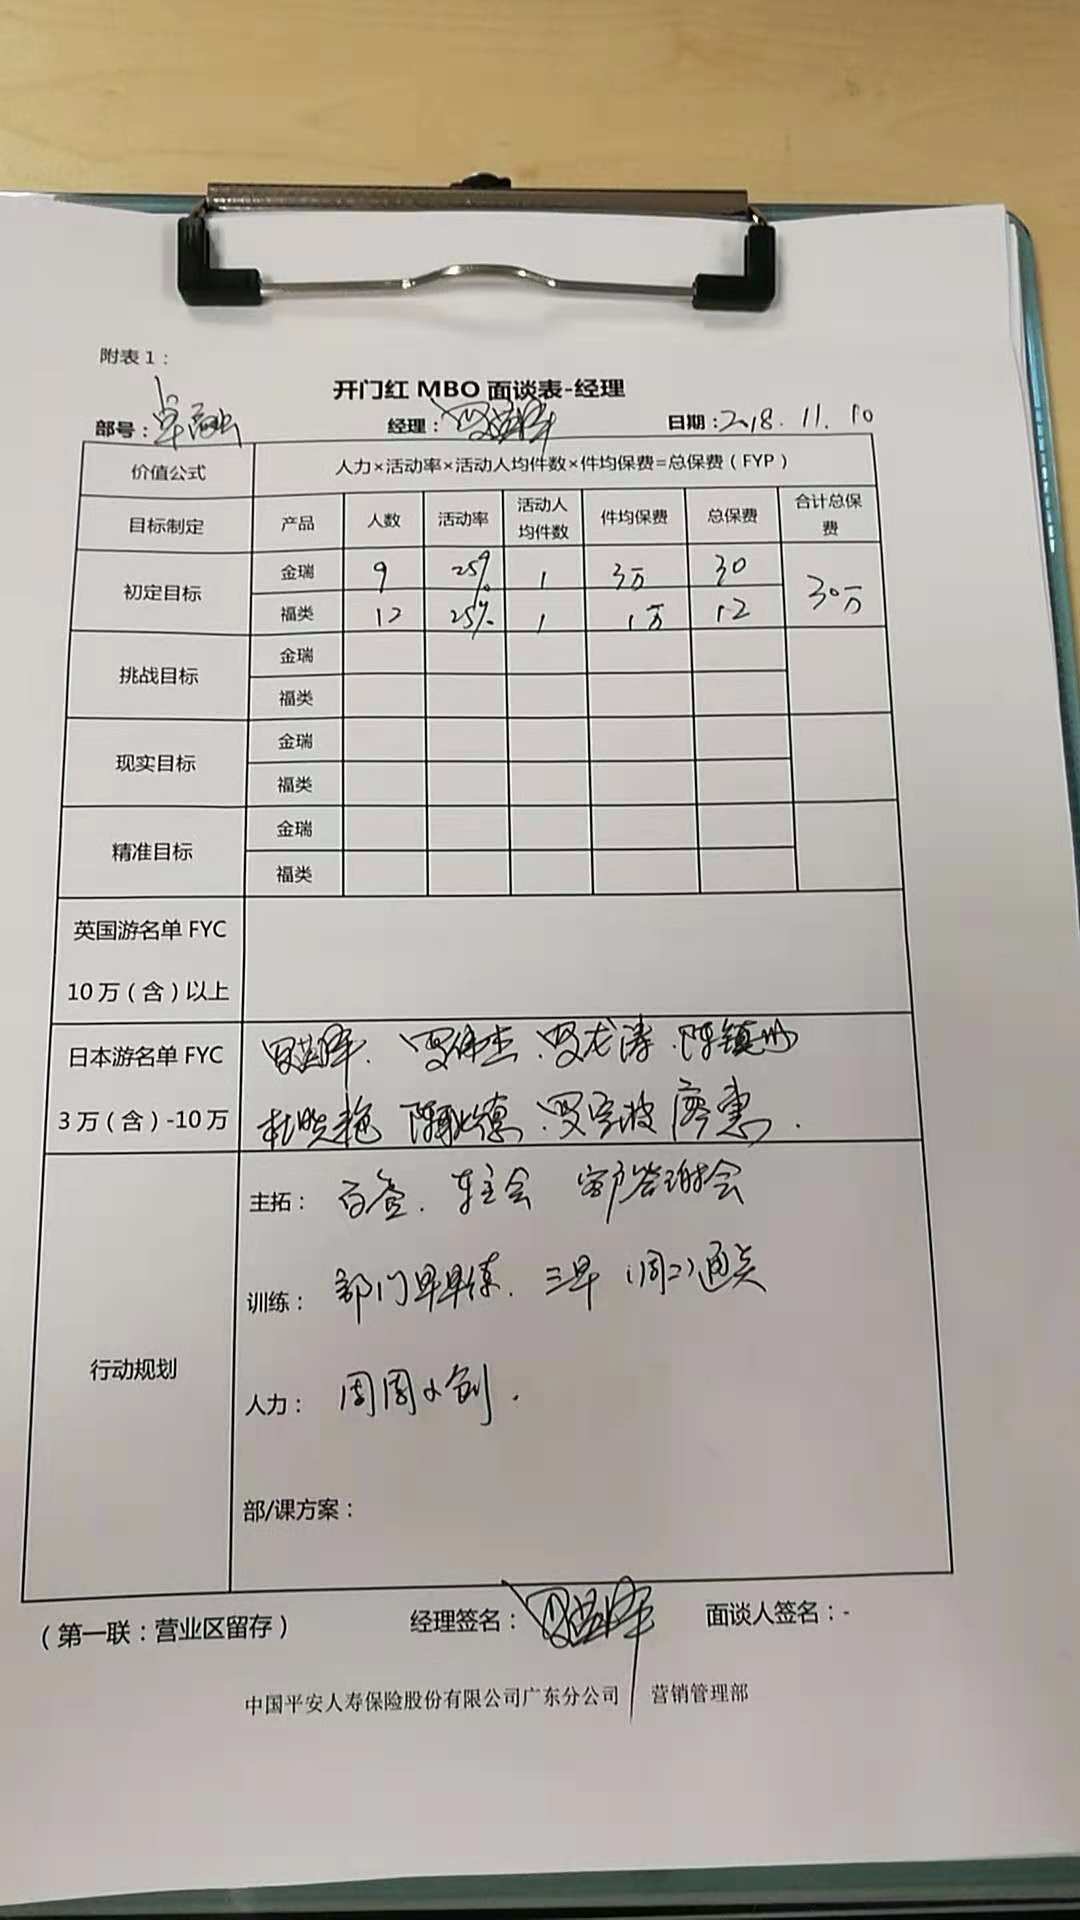 附表1：
开门红 MBO 面谈表-经理
部号：卓
经理：
日期：2018.11.10
价值公式 人力×活动率×活动人均件数×件均保费=总保费（FYP）
目标制定 产品 人数 活动率 活动人均件数 件均保费 总保费 合计总保费
初定目标 金瑞 9 25% 1 3万 30 30万
福类 12 25% 1 1万 12
挑战目标 金瑞
福类
现实目标 金瑞
福类
精准目标 金瑞
福类
英国游名单 FYC
10万（含）以上
日本游名单 FYC
3万（含）-10万
罗伟杰 罗龙涛 陈镇
杜晓艳 罗宇波 廖惠.
行动规划
主拓： 车主会 客户答谢会
训练： 部门早早练. 三早 (周二)通关
人力： 周周小创.
部/课方案：
（第一联：营业区留存） 经理签名： 面谈人签名：-
中国平安人寿保险股份有限公司广东分公司 营销管理部